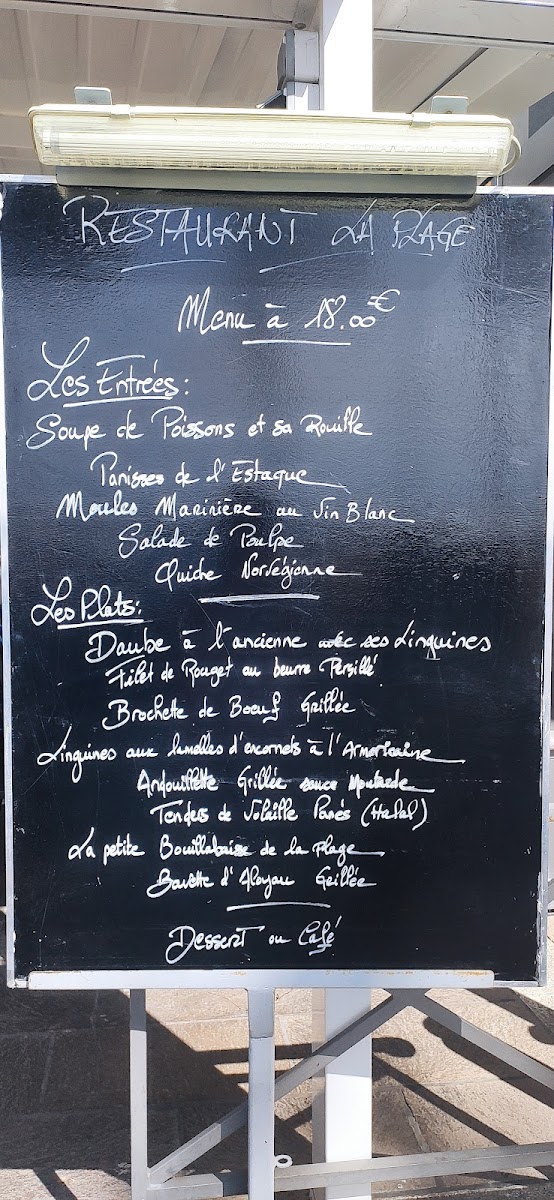 RESTAURANT LA PLAGE
Menu à 18.00€
Les Entrées:
Soupe de Poissons et sa Rouille
Panisses de l'Estaque
Moules Marinière au Vin Blanc
Salade de Poulpe
Quiche Norvégienne
Les Plats:
Daube à l'ancienne avec ses Linguines
Filet de Rouget au beurre Persillé
Brochette de Boeuf Grillée
Linguines aux lamelles d'encornets à l'Armoricaine
Andouillette Grillée sauce Moutarde
Tenders de Volaille Panés (Halal)
La petite Bouillabaisse de la Plage
Bavette d'Aloyau Grillée
Dessert ou Café